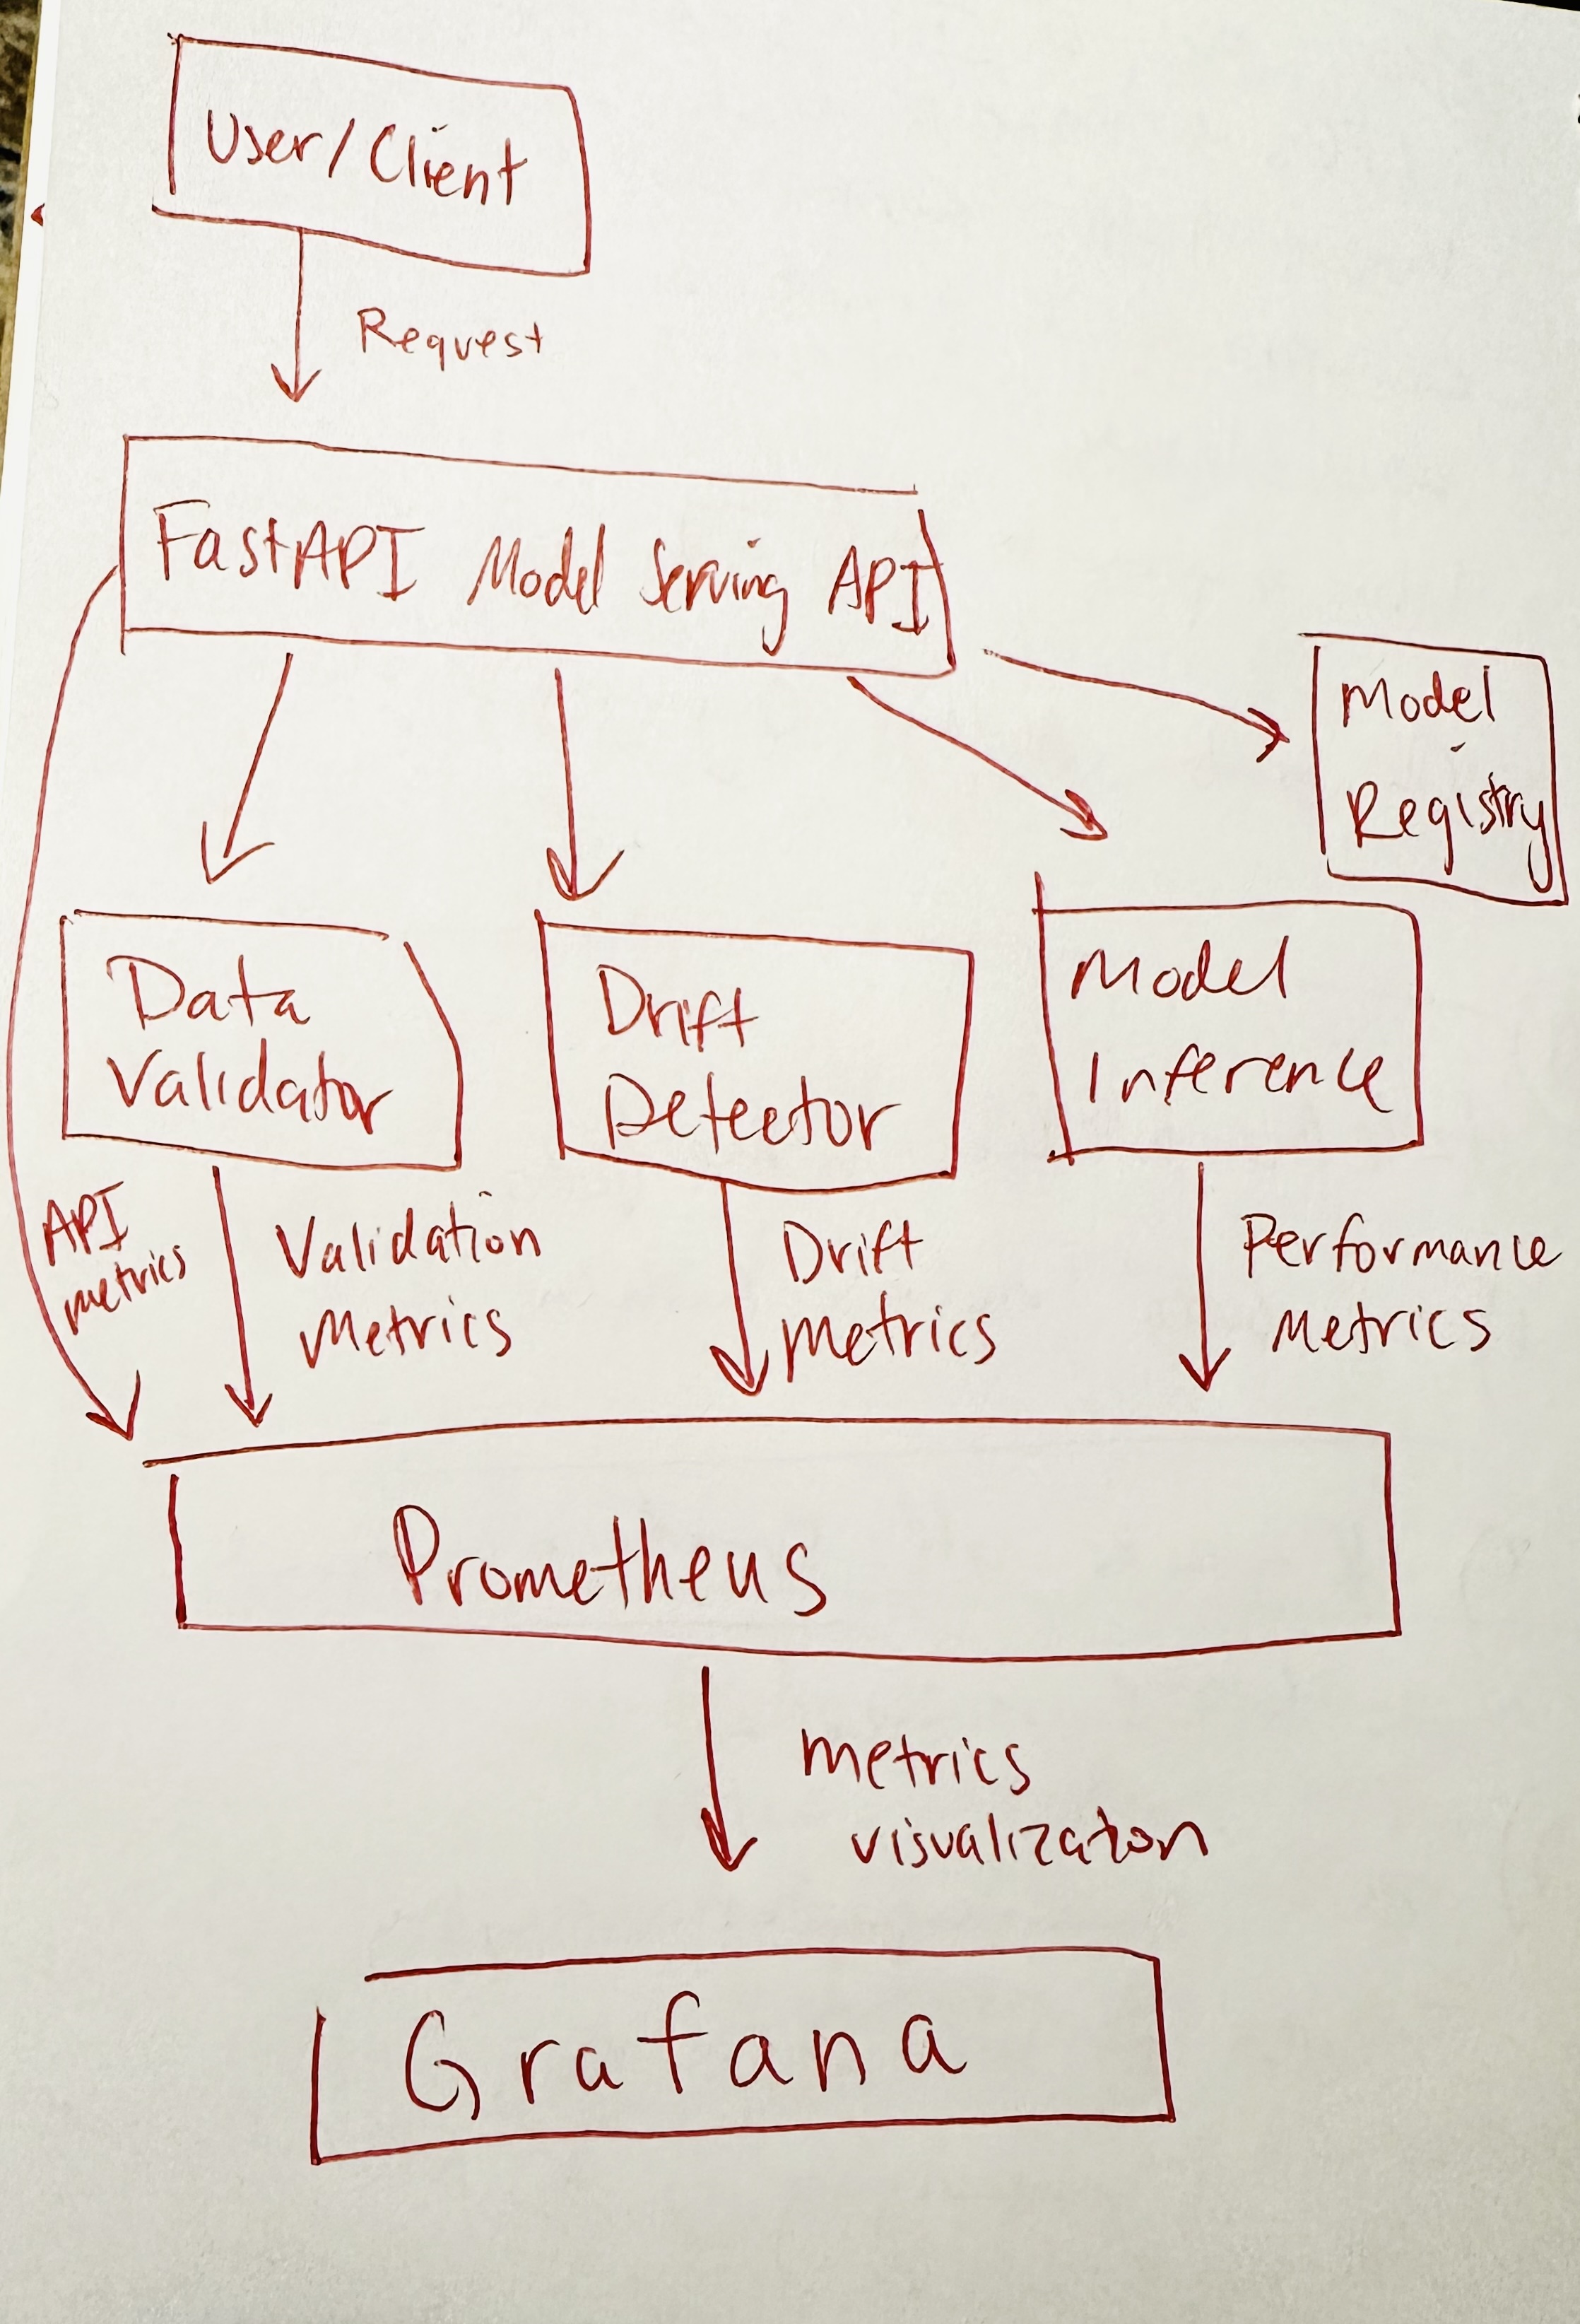 User/Client
Request
FastAPI Model Serving API
Model
Registry
Data
Validator
Drift
Detector
Model
Inference
API
metrics
Validation
Metrics
Drift
metrics
Performance
Metrics
Prometheus
metrics
visualization
Grafana